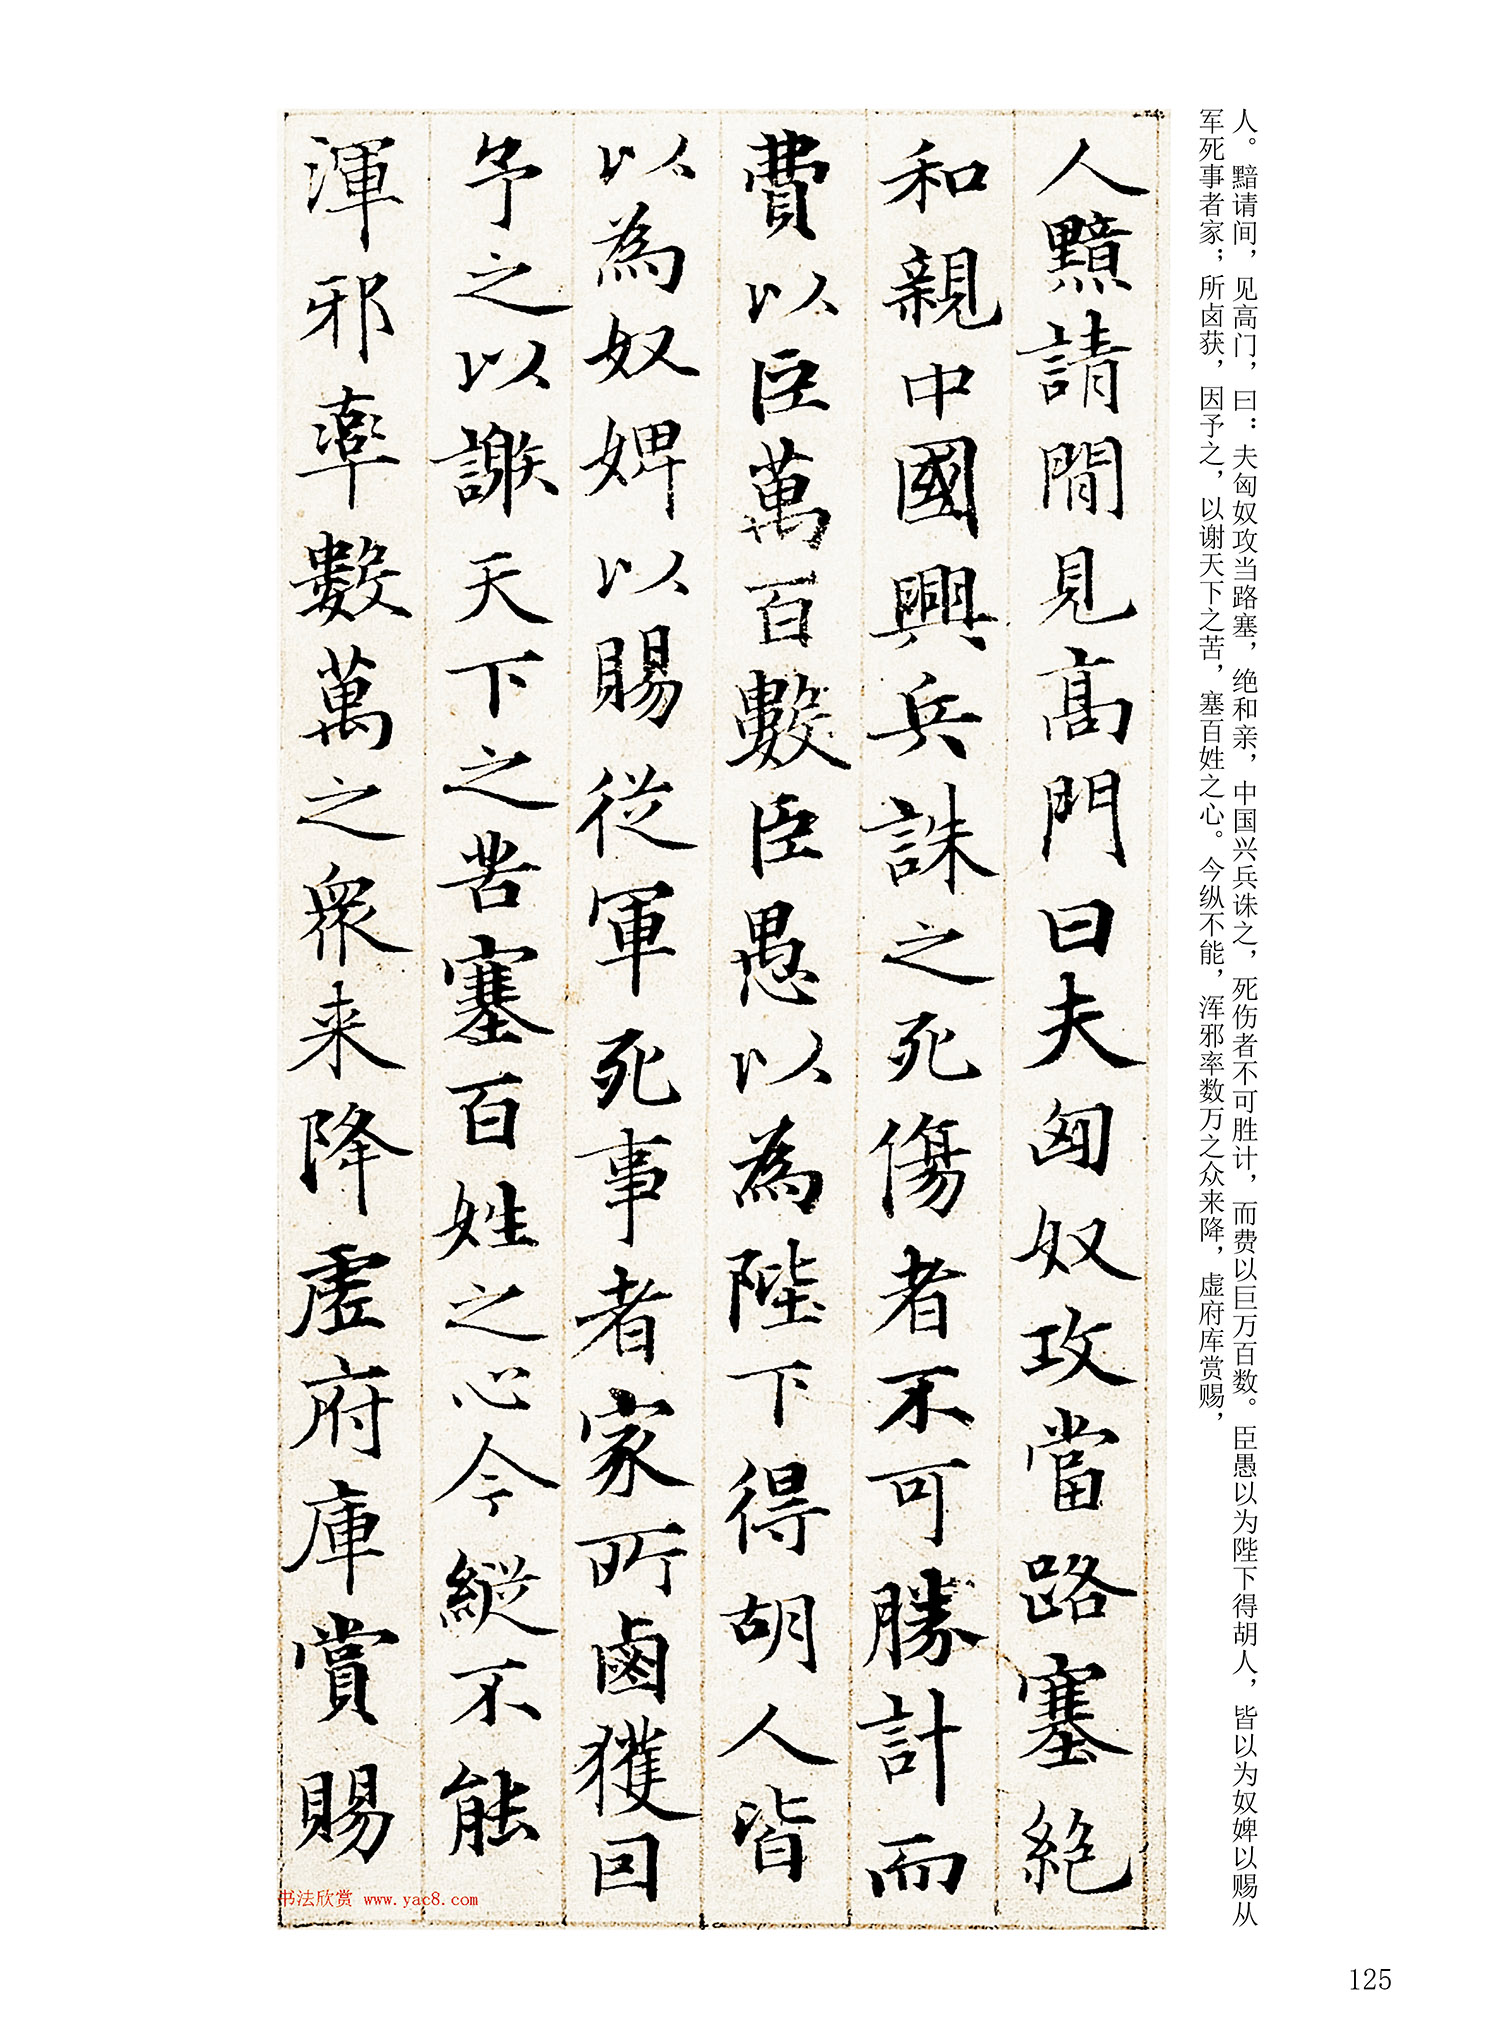 人。黯请间，见高门，曰：夫匈奴攻当路塞，绝和亲，中国兴兵诛之，死伤者不可胜计，而费以巨万百数。臣愚以为陛下得胡人，皆以为奴婢以赐从
军死事者家；所卤获，因予之，以谢天下之苦，塞百姓之心。今纵不能，浑邪率数万之众来降，虚府库赏赐，
人黯請間見高門曰夫匈奴攻當路塞絶
和親中國興兵誅之死傷者不可勝計而
費以臣萬百數臣愚以為陛下得胡人皆
以為奴婢以賜從軍死事者家所鹵獲回
予之以謝天下之苦塞百姓之心今縱不能
渾邪率數萬之衆来降虗府庫賞賜
书法欣赏 www.yac8.com
125